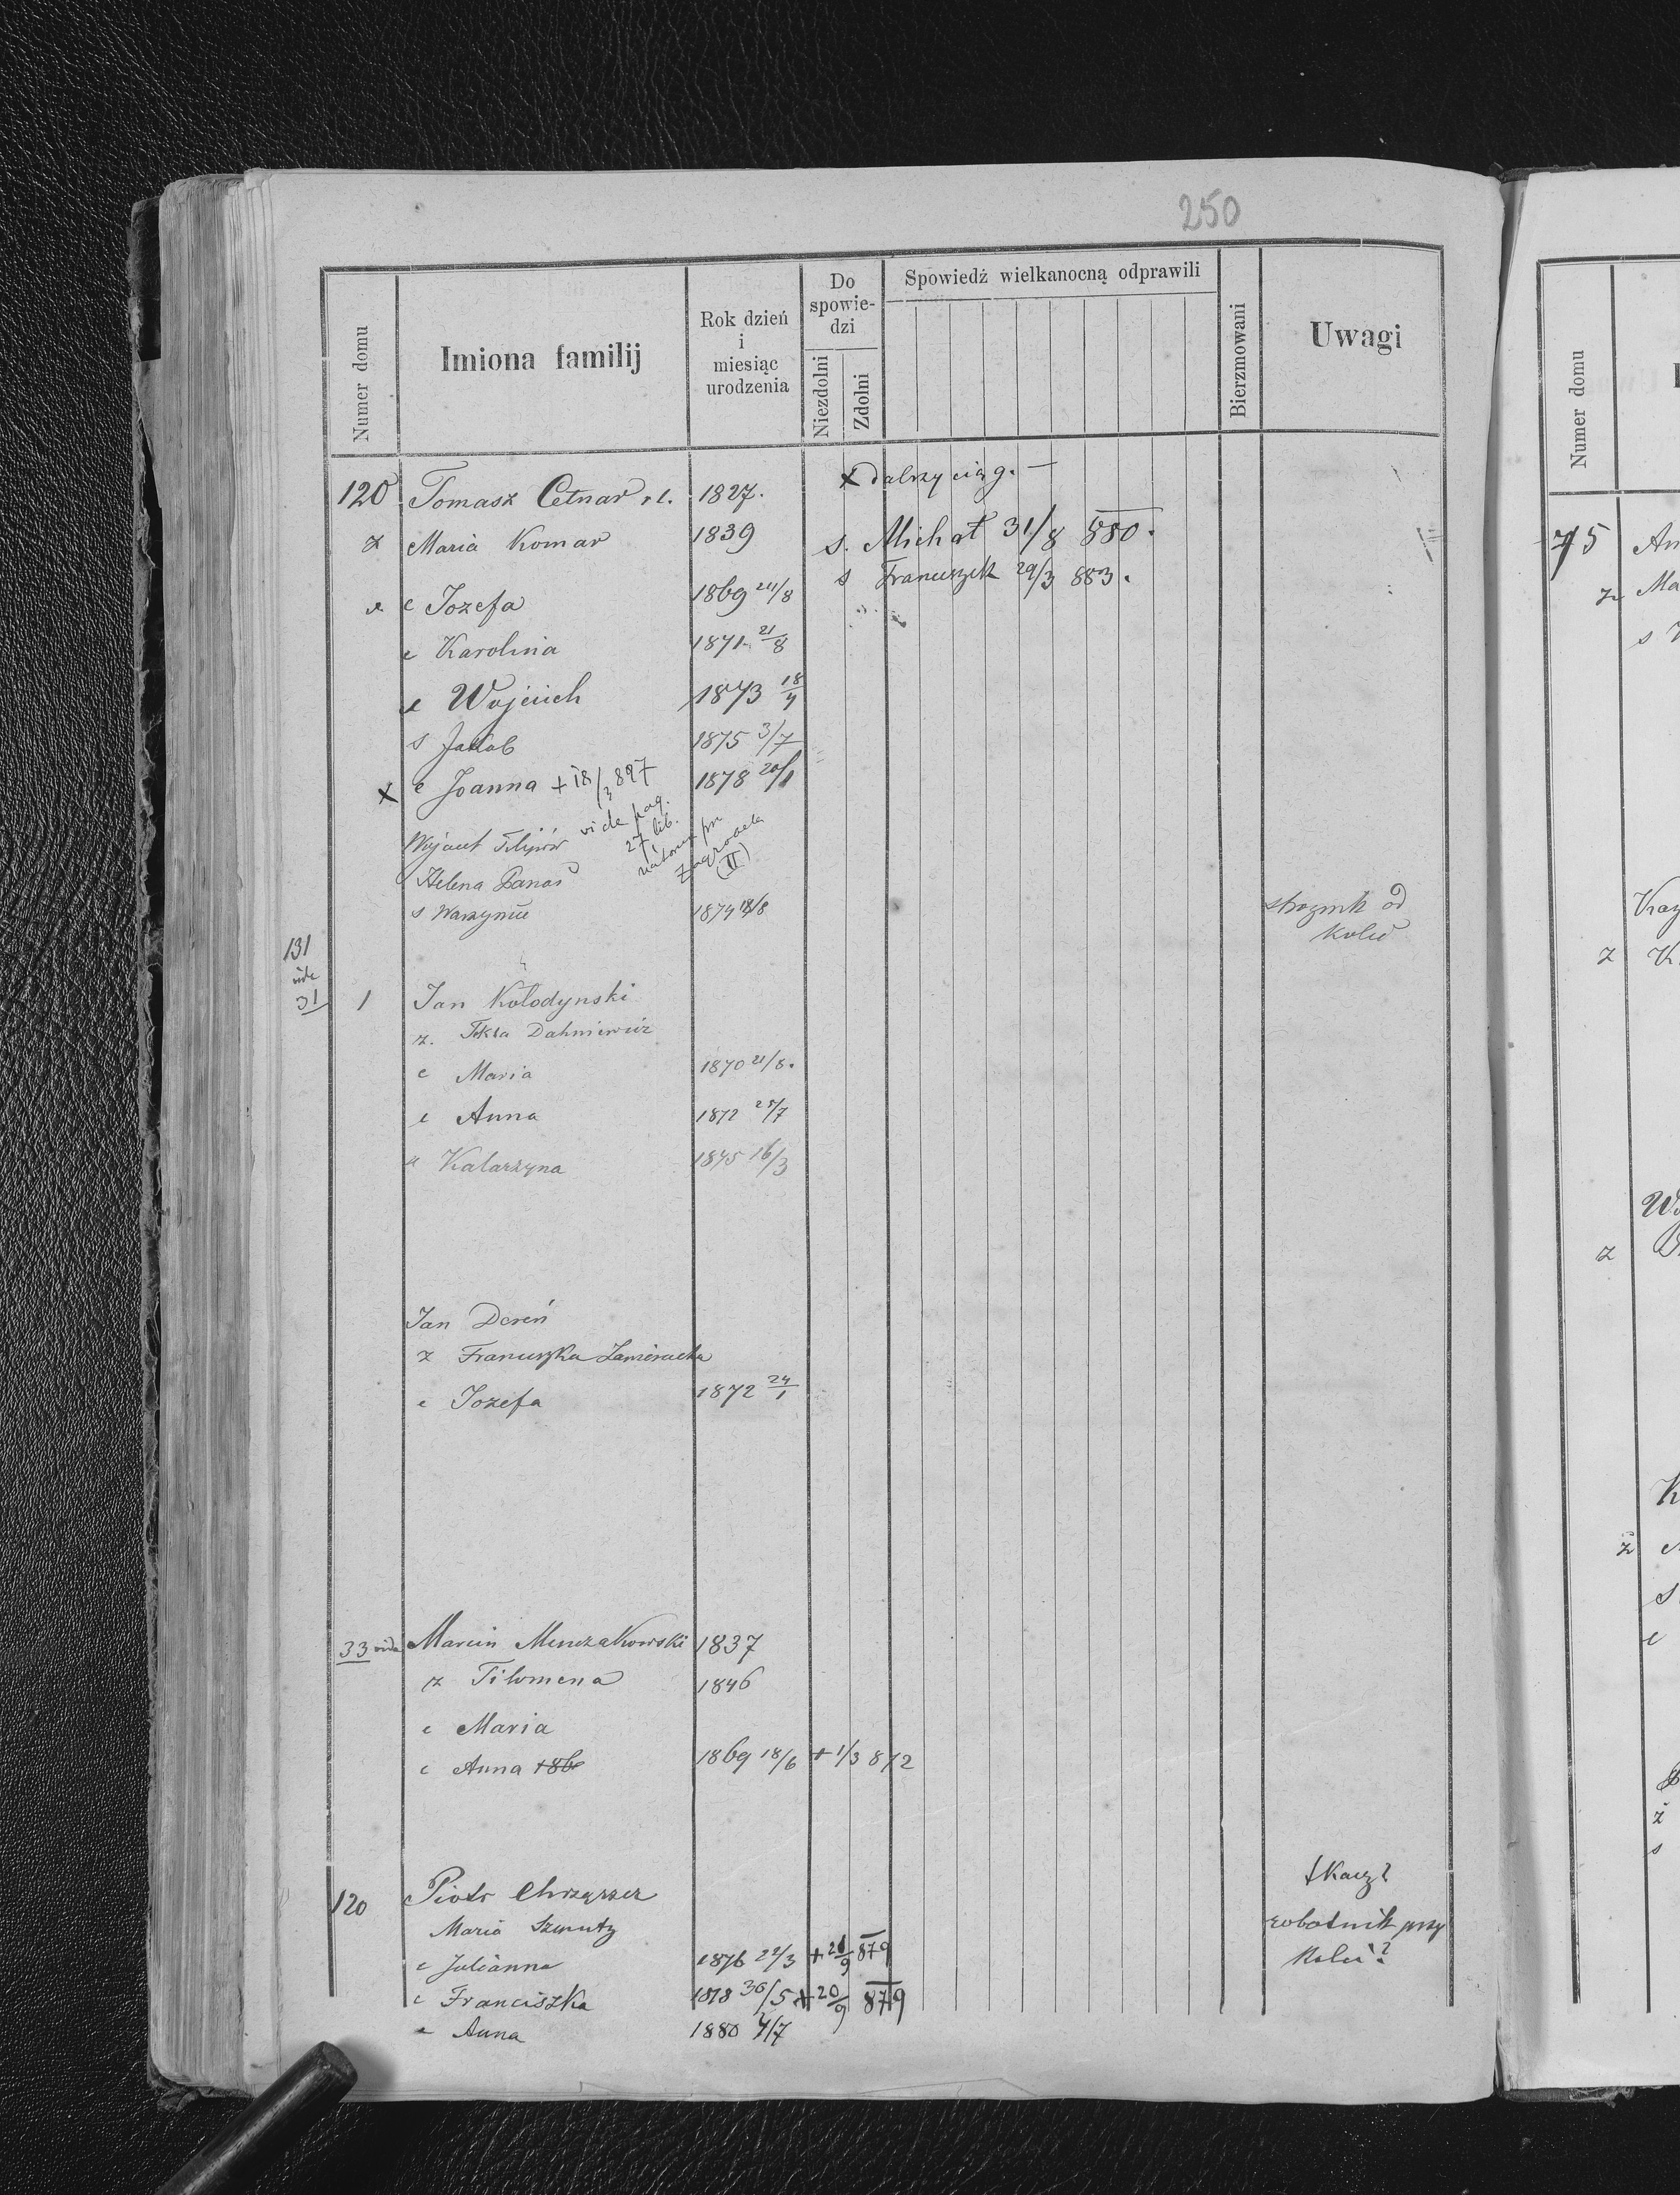 250
Numer domu
Imiona familij
Rok dzień
i
miesiąc
urodzenia
Do
spowie-
dzi
Niezdolni
Zdolni
Spowiedź wielkanocną odprawili
Bierzmowani
Uwagi
120 Tomasz Cetnar 1827.
z Maria Komar 1839
c Jozefa 1869 24/8
c Karolina 1871 21/8
Wojciech 1873 18/4
s Jakob 1875 3/7
x c Joanna + 18/3 897 1878 20/1
x Dalszy ciąg. —
s. Michał 31/8 880.
s Franciszek 29/3 883.
vide pag.
27 lib.
(II)
Wojciech Filipów
Helena Banaś
s Wawrzyniec 1874 18/8
od
Kolei
131
vide
31 1 Jan Kołodynski
z. Tekla
c Maria 1870 21/8.
c Anna 1872 25/7
c Katarzyna 1875 16/3
Jan Dereń
z Franciszka
c Jozefa 1872 24/1
33 vide Marcin Menczakowski 1837
z Filomena 1846
c Maria
c Anna 1869 18/6 + 1/3 872
120 Piotr Chrząszcz
Maria Szmutz
c Julianna 1876 22/3 + 21/9 879
c Franciszka 1878 30/5 + 20/9 879
c Anna 1880 4/7
tkacz?
robotnik przy
Kolei?
Numer domu
75 An
z Ma
s
z K
z
z
s
c
z
s